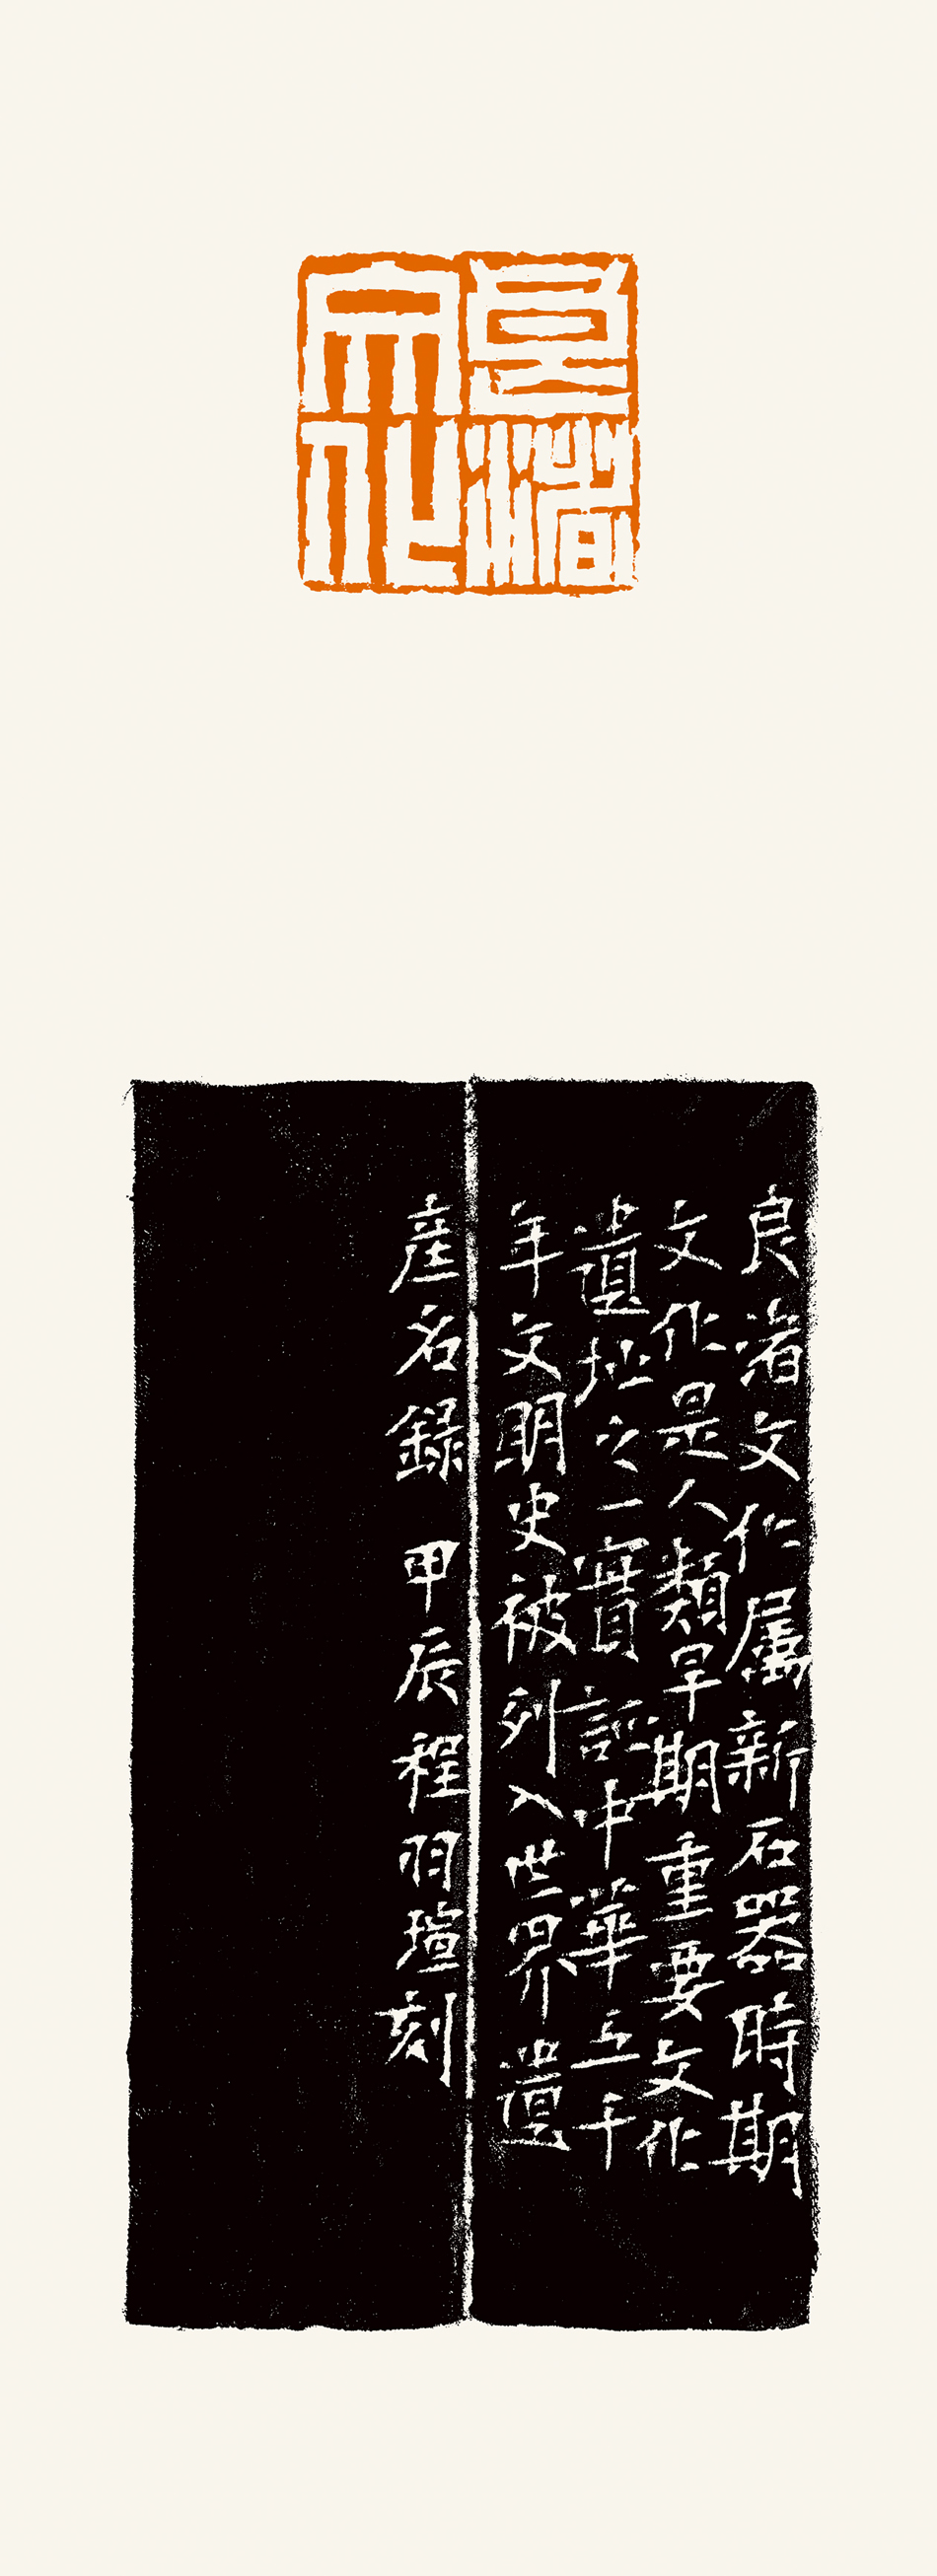 良渚
文化
良渚文化属新石器時期
文化是人類早期重要文化
遺址之一實証中華五千
年文明史被列入世界遺
産名録 甲辰程羽瑄刻